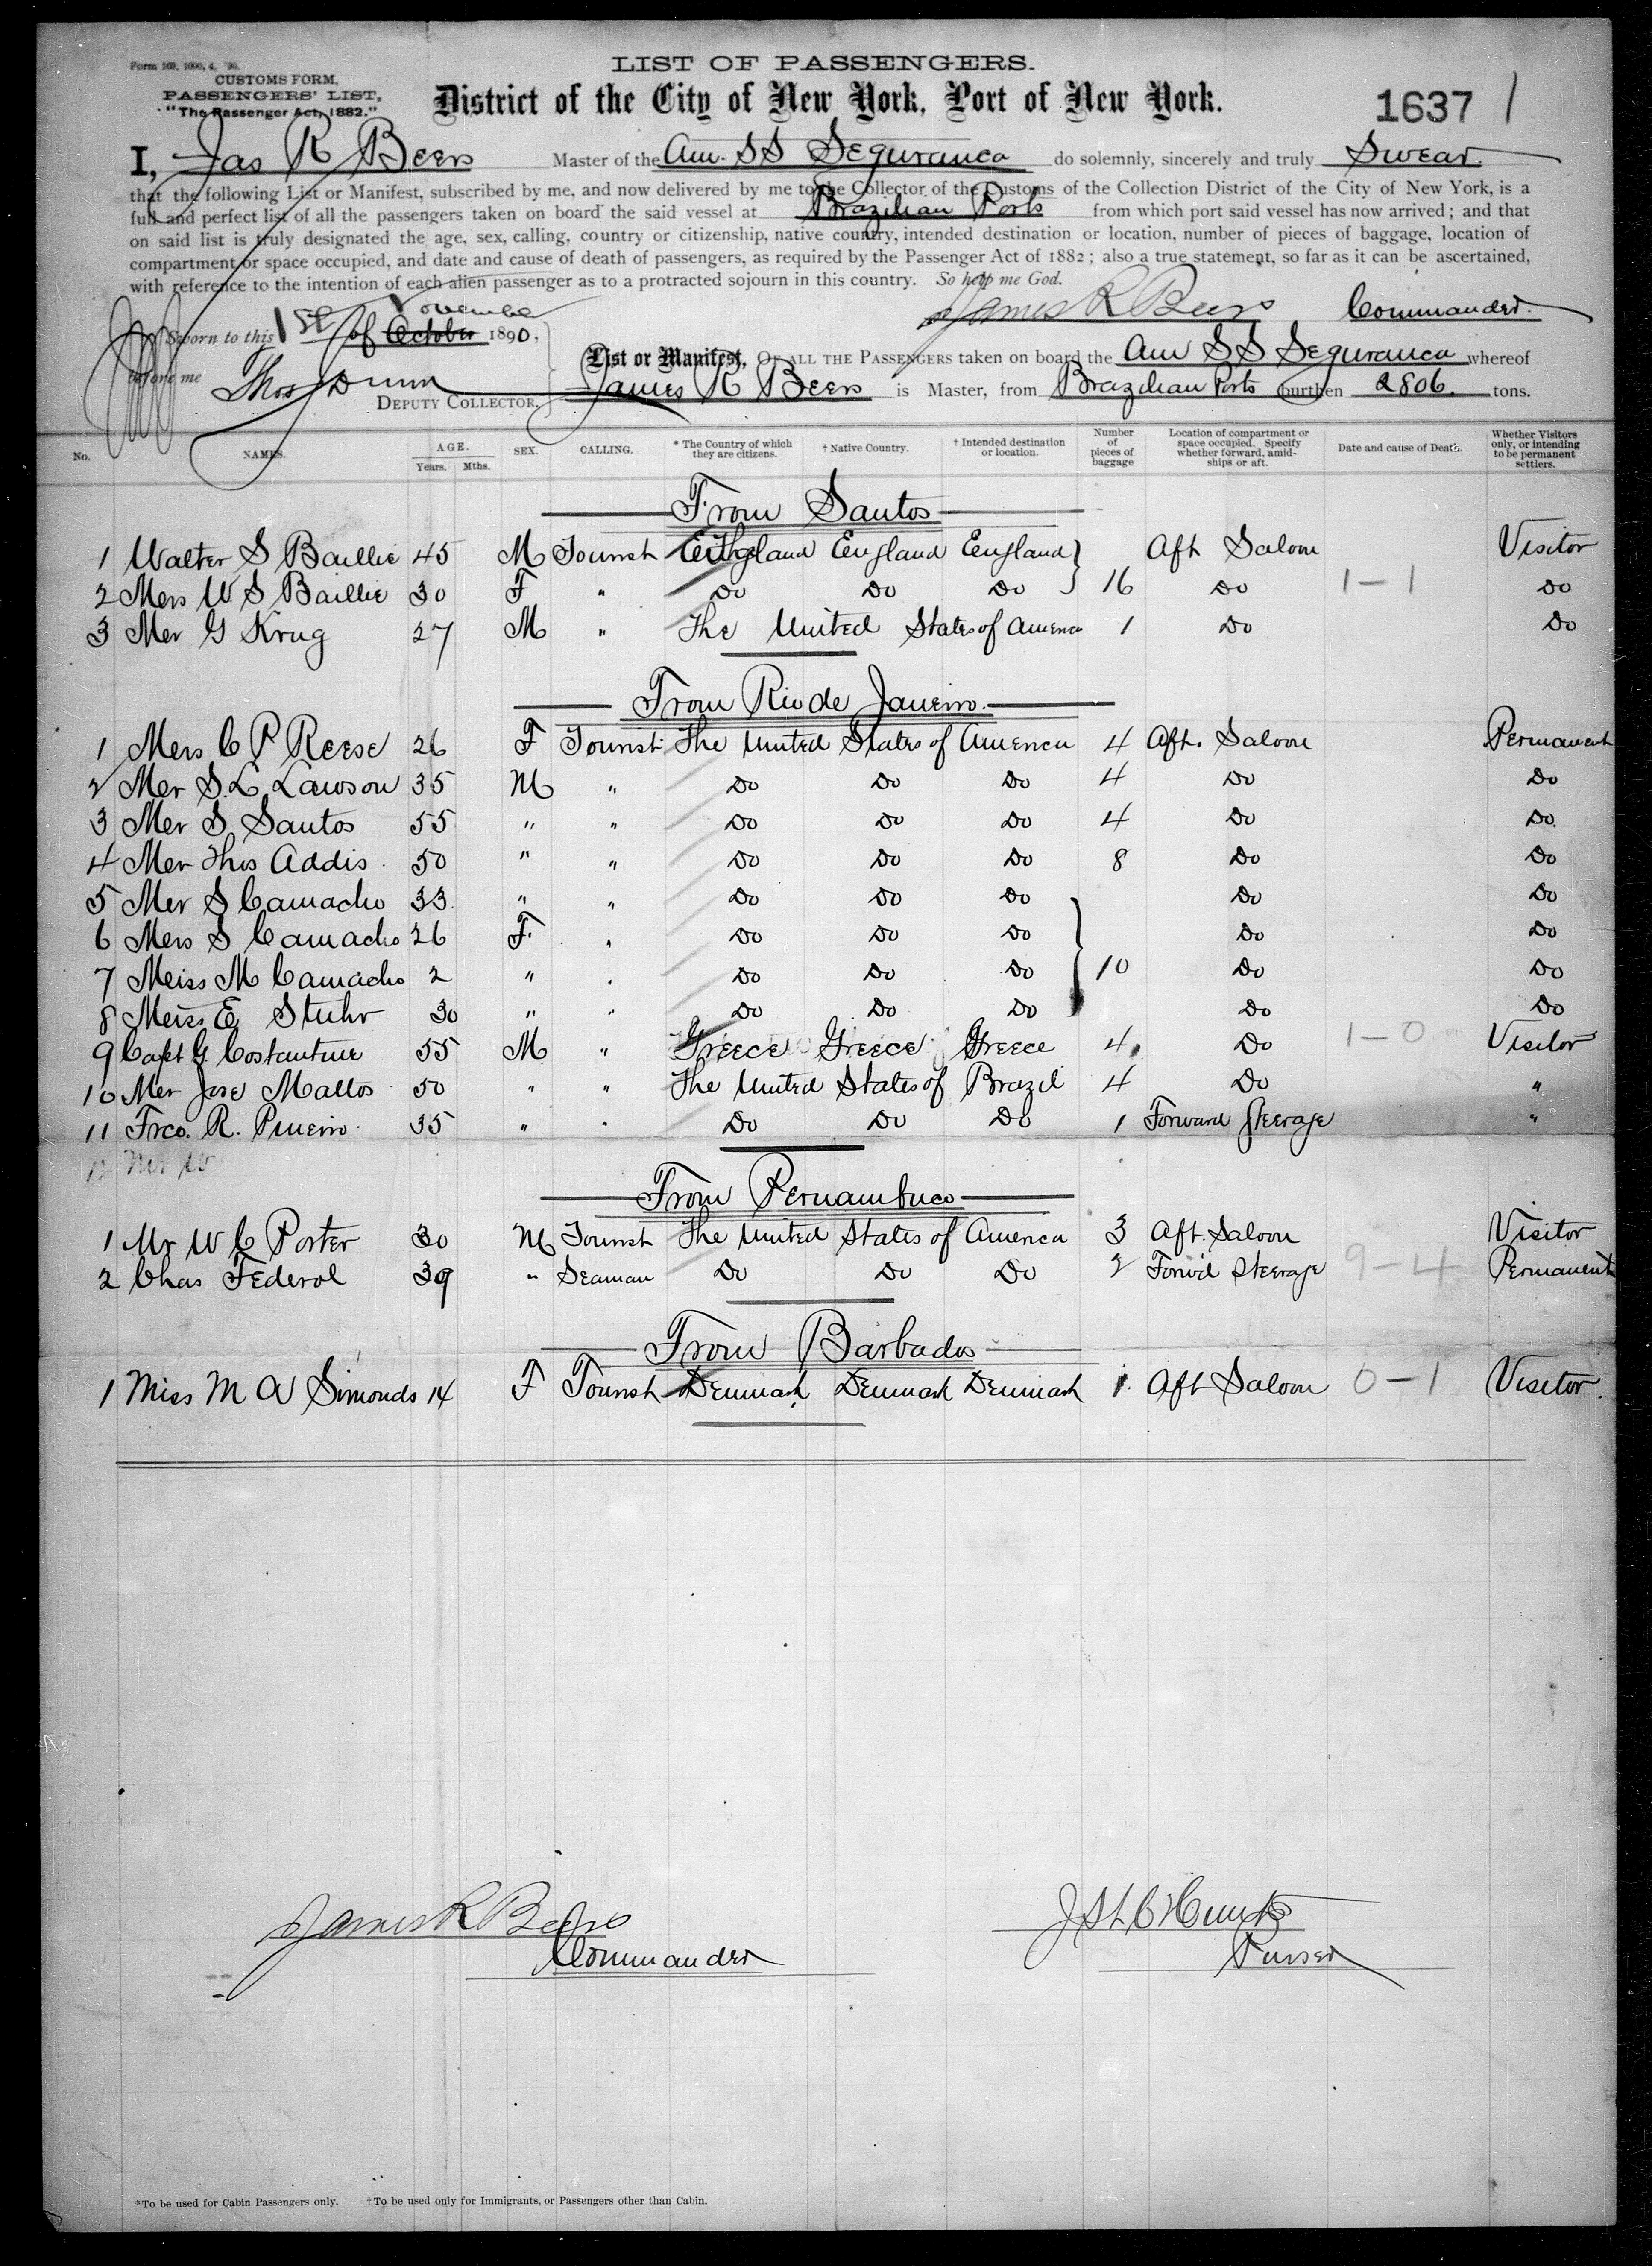 Form 169, 1000, 4, '90.
CUSTOMS FORM.
PASSENGERS' LIST,
"The Passenger Act, 1882."
LIST OF PASSENGERS.
District of the City of New York, Port of New York.
1637 1
I, Jas R Beers Master of the Am. SS Seguranca do solemnly, sincerely and truly Swear.
that the following List or Manifest, subscribed by me, and now delivered by me to the Collector of the Customs of the Collection District of the City of New York, is a
full and perfect list of all the passengers taken on board the said vessel at Brazilian Ports from which port said vessel has now arrived; and that
on said list is truly designated the age, sex, calling, country or citizenship, native country, intended destination or location, number of pieces of baggage, location of
compartment or space occupied, and date and cause of death of passengers, as required by the Passenger Act of 1882; also a true statement, so far as it can be ascertained,
with reference to the intention of each alien passenger as to a protracted sojourn in this country. So help me God.
James R Beers Commander.
Sworn to this 1st of October November 1890,
before me Thos Dunn
DEPUTY COLLECTOR.
List or Manifest, OF ALL THE PASSENGERS taken on board the Am SS Seguranca whereof
James R Beers is Master, from Brazilian Ports burthen 2806. tons.
No. NAMES. AGE. Years. Mths. SEX. CALLING. * The Country of which they are citizens. † Native Country. † Intended destination or location. Number of pieces of baggage Location of compartment or space occupied. Specify whether forward, amidships or aft. Date and cause of Death. Whether Visitors only, or intending to be permanent settlers.
From Santos
1 Walter S Baillie 45 M Tourist England England England Aft Saloon Visitor
2 Mers W S Baillie 30 F " Do Do Do 16 Do 1-1 Do
3 Mer G Krug 27 M " The United States of America 1 Do Do
From Rio de Janeiro.
1 Mers C P Reese 26 F Tourist The United States of America 4 Aft. Saloon Permanent
2 Mer S. L. Lawson 35 M " Do Do Do 4 Do Do
3 Mer S Santos 55 " " Do Do Do 4 Do Do.
4 Mer Thos Addis 50 " " Do Do Do 8 Do Do
5 Mer S Camacho 33 " " Do Do Do Do Do
6 Mers S Camacho 26 F. " Do Do Do Do Do
7 Meiss M Camacho 2 " " Do Do Do 10 Do Do
8 Meiss E Stuhr 30 " " Do Do Do Do Do
9 Capt G. Costantine 55 M " Greece Greece Greece 4 Do 1-0 Visitor
10 Mer Jose Mattos 50 " " The United States of Brazil 4 Do "
11 Frco. R. Pineiro 35 " " Do Do Do 1 Forward Steerage "
Mr W
From Pernambuco
1 Mr W C Porter 30 M Tourist The United States of America 3 Aft. Saloon Visitor
2 Chas Federol 39 " Seaman Do Do Do 2 Forw'd Steerage 9-4 Permanent
From Barbados
1 Miss M A Simonds 14 F Tourist Denmark Denmark Denmark 1 Aft Saloon 0-1 Visitor.
James R Beers
Commander
Purser
*To be used for Cabin Passengers only. †To be used only for Immigrants, or Passengers other than Cabin.